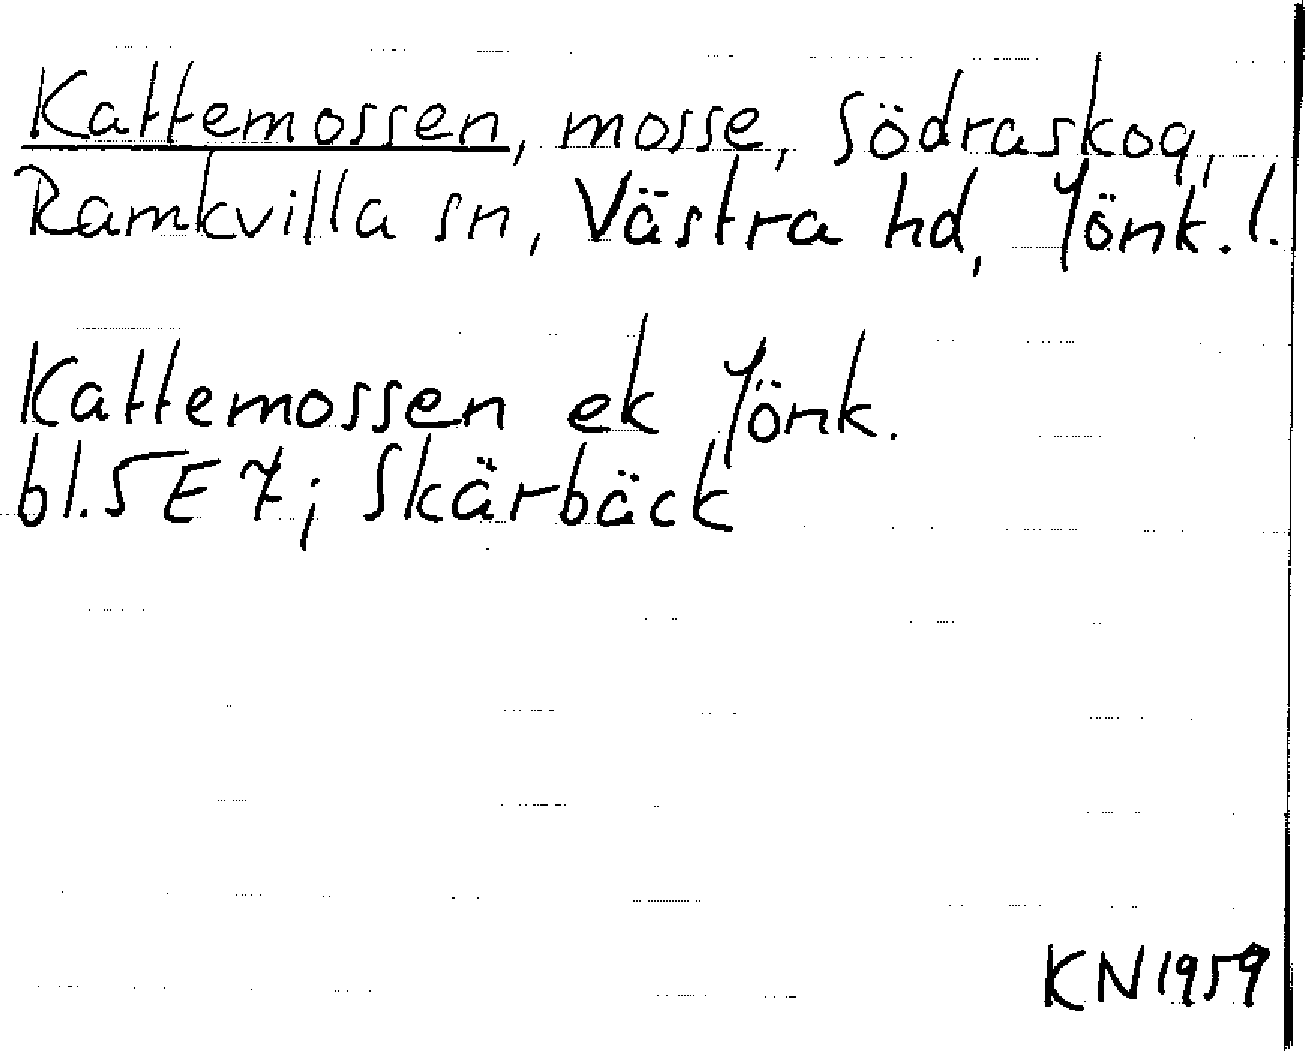 Kattemossen, mosse, Södraskog,
Ramkvilla sn, Västra hd, Jönk. l.
Kattemossen ek Jönk.
bl. 5 E 7; Skärbäck
KN 1959